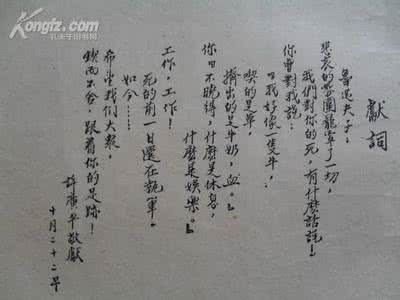 Kongfz.com
孔夫子旧书网
獻詞
魯迅夫子:
悲哀的氛圍籠罩了一切,
我們對你的死,有什麼話說!
你曾對我說:
『我好像一隻牛,
喫的是草,
擠出的是牛奶,血。』
你『不曉得,什麼是休息,
什麼是娛樂。』
工作,工作!
死的前一日還在執筆。
如今……
希望我們大衆,
鍥而不舍,跟着你的足跡!
許廣平敬獻
十月二十二早